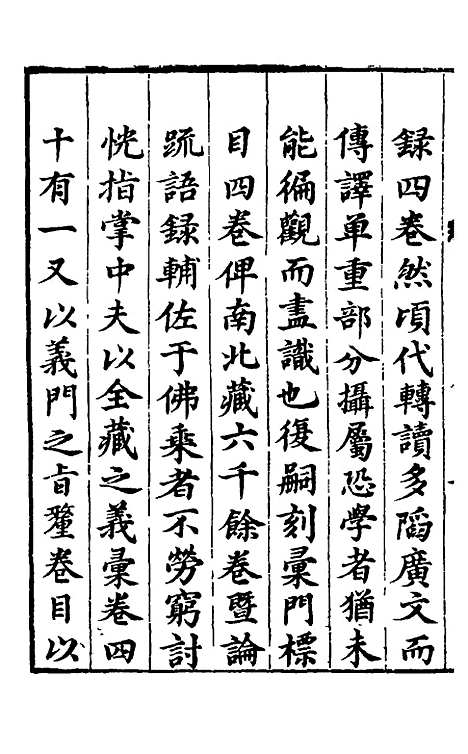 録四卷然頃代轉讀多䧟廣文而
傳譯單重部分攝屬恐學者猶未
能徧觀而盡識也復嗣刻彙門標
目四卷俾南北藏六千餘卷暨論
䟽語録輔佐于佛乘者不勞窮討
恍指掌中夫以全藏之義彙卷四
十有一又以義門之旨釐卷目以